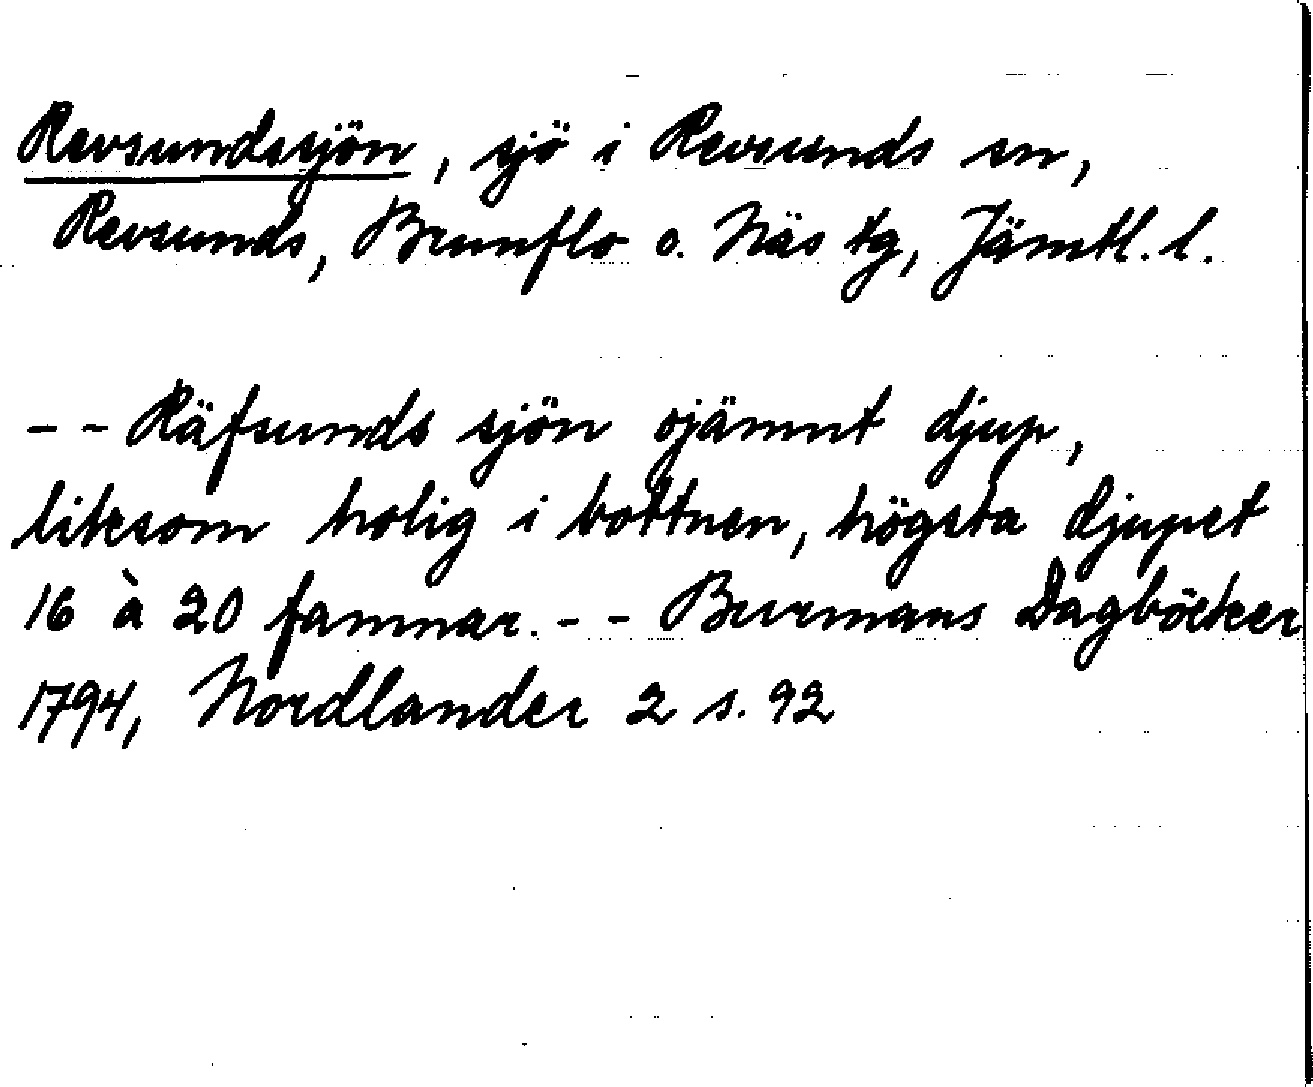 Revsundssjön, sjö i Revsunds sn,
Revsunds, Brunflo o. Näs tg, Jämtl. l.
-- Räfsunds sjön ojämnt djup,
liksom holig i bottnen, högsta djupet
16 à 20 famnar. -- Burmans Dagböcker
1794, Nordlander 2 s. 92